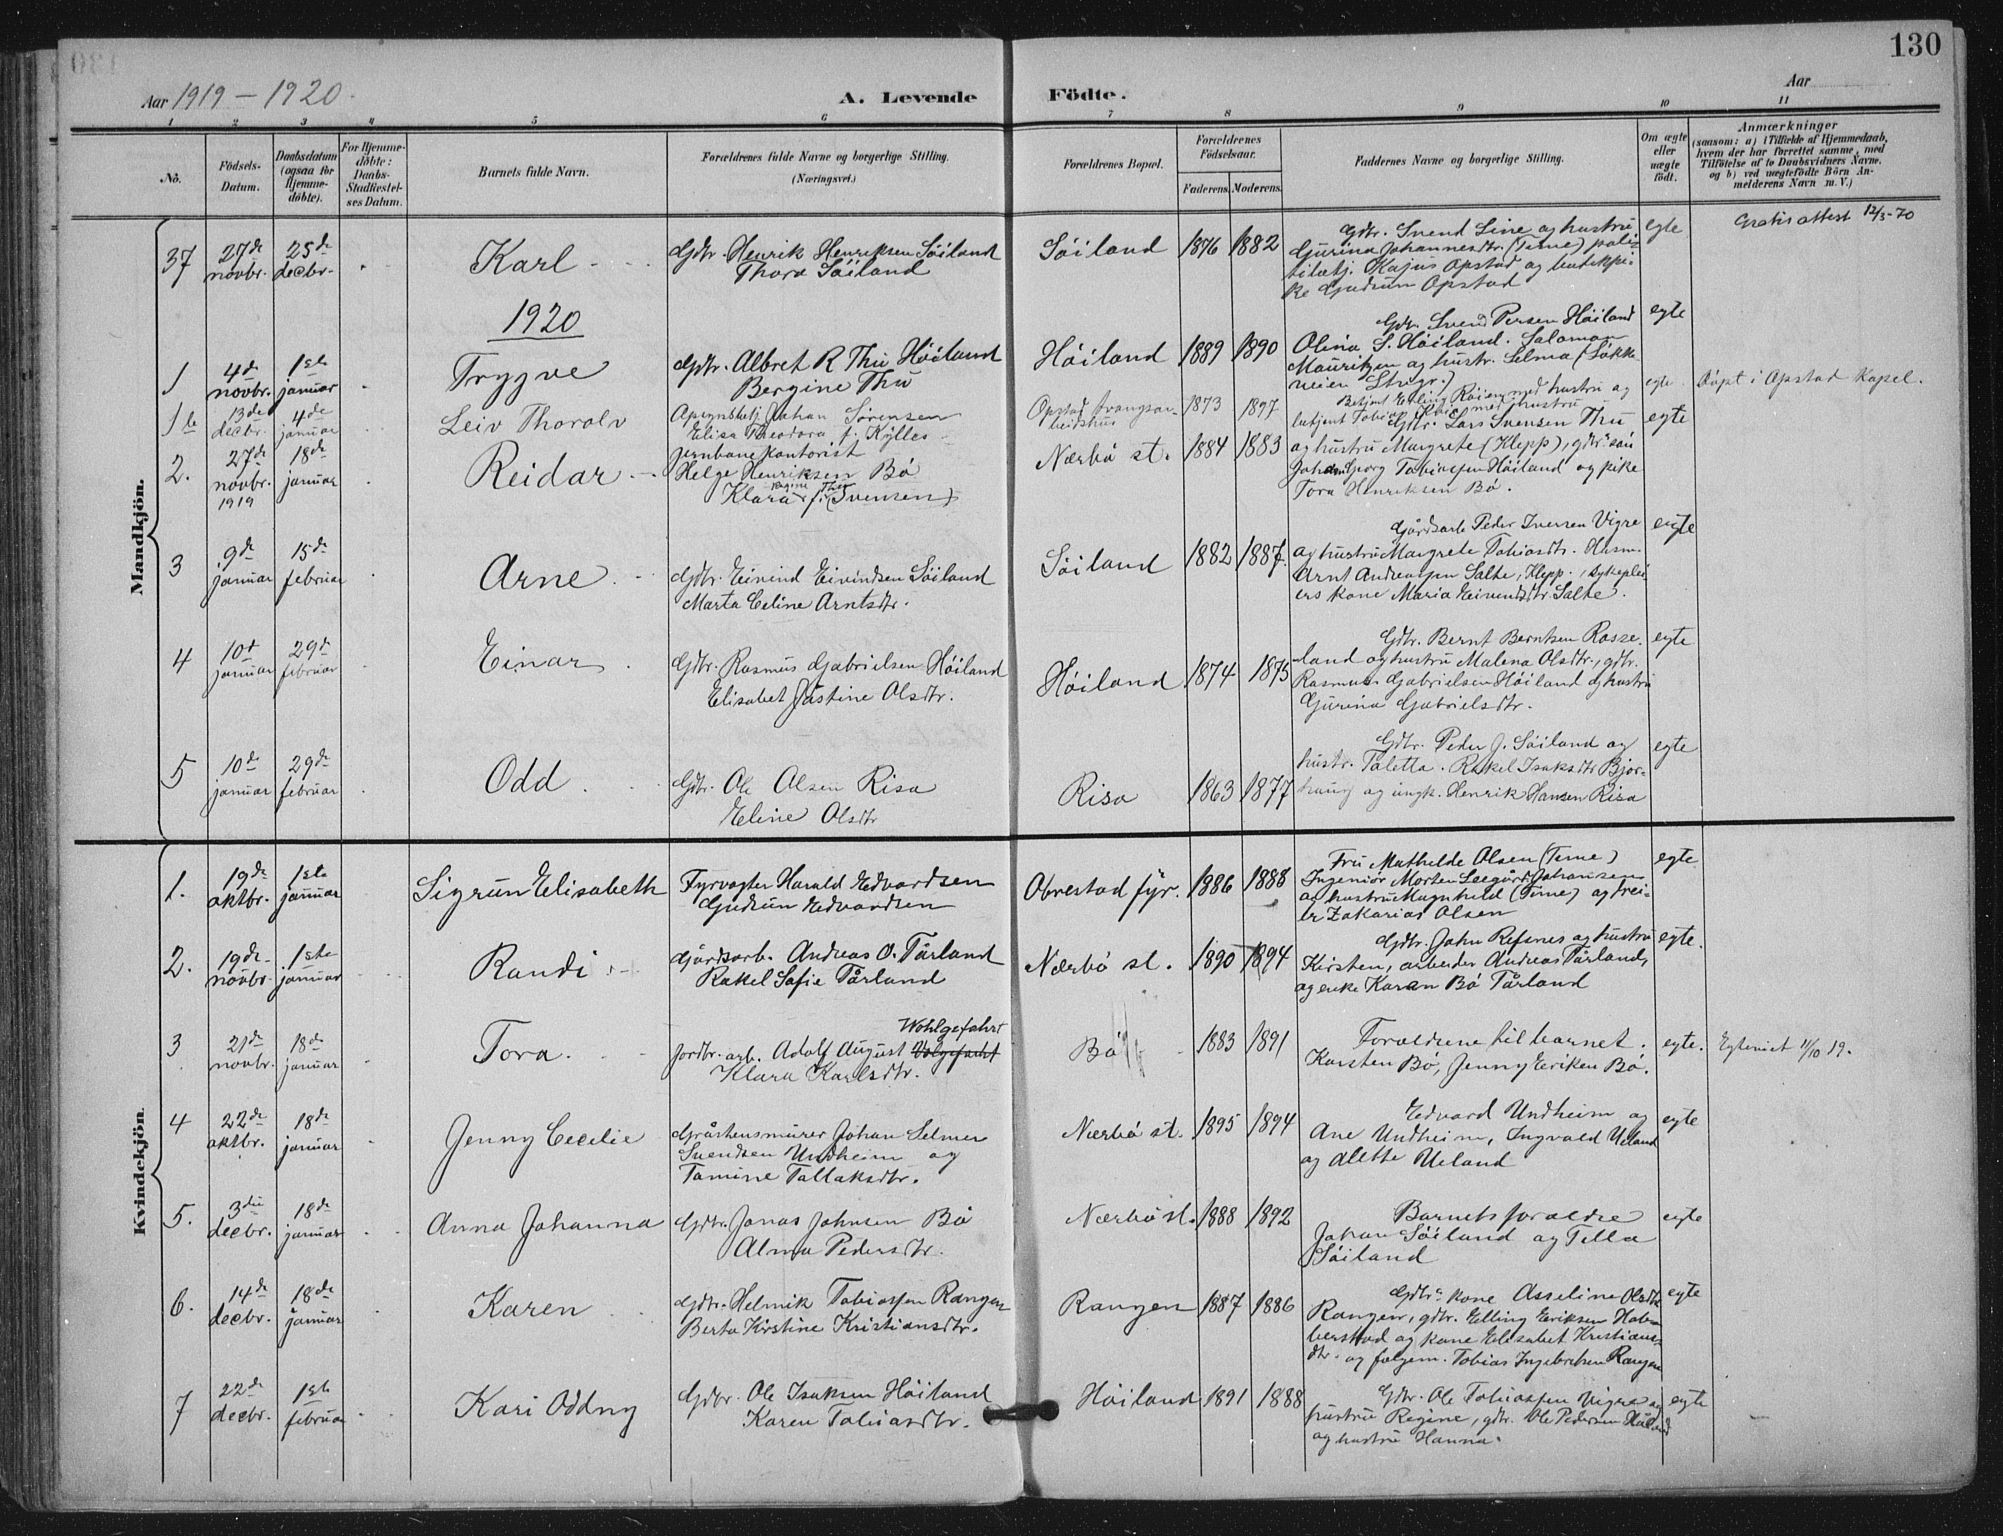 130
Aar 1919 – 1920.
A. Levende Födte.
Aar
1 2 3 4 5 6 7 8 9 10 11
No.
Födsels-Datum.
Daabsdatum (ogsaa for Hjemme-döbte).
For Hjemme-döbte: Daabs-Stadfæstel-ses Datum.
Barnets fulde Navn.
Forældrenes fulde Navne og borgerlige Stilling. (Næringsvei.)
Forældrenes Bopæl.
Forældrenes Födselsaar.
Faderens. Moderens.
Faddernes Navne og borgerlige Stilling.
Om ægte eller uægte födt.
Anmærkninger
(saasom: a) i Tilfælde af Hjemmedaab, hvem der har forrettet samme, med Tilföielse af to Daabsvidners Navne, og b) ved uægtefödte Börn Anmelderens Navn m. V.)
Mandkjön.
37
27de novbr.
25de decbr.
Karl
Gdbr. Henrik Henriksen Söiland
Thora Söiland
Söiland
1876 1882
Gdbr. Svend Line og hustru
Gurina Johannesdtr. (Time) poli-
tibetj. Kajus Opstad og butikpi-
ke Gudrun Opstad
egte
Gratis attest 12/3-70
1920
1
4de novbr.
1ste januar
Trygve
Gdbr. Albret R Thu Höiland
Bergine Thu
Höiland
1889 1890
Gdbr. Svend Persen Höiland
Olina S. Höiland. Salomon
Mauritzen og hustr. Selma (Sokke-
neien Stvgr.)
egte
1b
13de decbr.
4de januar
Leiv Thorolv
Opsynsbetj Johan Sörensen
Elisa Theodora f. Kylles
Opstad tvangsar-
beidshus
1873 1897
Betjent Erling Roien med hustru og
betjent Tobias med hustru
egte
Döpt i Opstad Kapel.
2.
27de novbr. 1919
18de januar
Reidar
Jernbanekontorist
Helge Henriksen Bö
Klara Regine f. Thu (Svensen)
Nærbö st.
1884 1883
Gdbr. Lars Svensen Thu
og hustru Margrete (Klepp), gdbr. sön
Johan Georg Tobiassen Höiland og pike
Tora Henriksen Bö.
egte
3
9de januar
15de februar
Arne
Gdbr. Eivind Eivindsen Söiland
Marta Celine Arntsdtr.
Söiland
1882 1887
Gårdsarb Peder Iversen Vigre
og hustru Margrete Tobiasdtr. Husm.
Arnt Andreassen Salte, Klepp., sykeplei-
ers kone Maria Eivendsdtr. Salte.
egte
4
10d januar
29d februar
Einar
Gdbr. Rasmus Gabrielsen Höiland
Elisabet Jästine Olsdtr.
Höiland
1874 1875
Gdbr. Bernt Berntsen Rosse-
land og hustru Malena Olsdtr., gdbr.
Rasmus Gabrielsen Höiland og hustru
Gurina Gabrielsdtr.
egte
5
10de januar
29de februar
Odd
Gdbr. Ole Olsen Risa
Eline Olsdtr
Risa
1863 1877
Gdbr. Peder J. Söiland og
hustr. Taletta. Rakel Isaksdtr Bjor-
haug og ungk. Henrik Hansen Risa
egte
Kvindekjön.
1.
19de oktbr.
1ste januar
Sigrun Elisabeth
Fyrvogter Harald Edvardsen
Gudrun Edvardsen
Obrestad fyr.
1886 1888
Fru Mathilde Olsen (Time)
Ingeniör Morten Seegård Johansen
og hustru Magnhild (Time) og frei-
er Zakarias Olsen
egte
2.
19de novbr.
1ste januar
Randi
Gårdsarb. Andreas O. Tårland
Rakel Sofie Tårland
Nærbö st.
1890 1894
Gdbr. John Refsnes og hustru
Kirsten, arbeider Andreas Tårland,
og enke Karen Bö Tårland
egte.
3
21de novbr.
18de januar
Tora.
Wohlgefahrt
Jordbr. arb. Adolf August Volgefarht
Klara Karlsdtr.
Bö
1883 1891
Foreldrene til barnet.
Karsten Bö, Jenny Eriken Bö.
egte.
Egteviet 11/10 19.
4
22de oktbr.
18de januar
Jenny Cecilie
Gråstensmurer Johan Selmer
Svendsen Undheim og
Tomine Tollaksdtr.
Nærbö st.
1895 1894
Edvard Undheim og
Ane Undheim, Ingvald Ueland
og Alette Ueland
egte
5.
3die decbr.
18de januar
Anna Johanna
Gdbr. Jonas Johnsen Bö
Alma Pedersdtr.
Nærbö st.
1888 1892
Barnets foreldre
Johan Söiland og Tella
Söiland
egte
6.
14de decbr.
18de januar
Karen
Gdbr. Helmik Tobiassen Rangen
Berta Kirstine Kristiansdtr.
Rangen
1887 1886
Gdbr.s kone Asseline Olsdtr
Rangen, gdbr. Elling Eriksen Hob-
berstad og kone Elisabet Kristians-
dtr. og følgem. Tobias Ingebretsen Rangen
egte
7
22de decbr.
1ste februar
Kari Oddny
Gdbr. Ole Isaksen Höiland
Karen Tobiasdtr.
Höiland
1891 1888
Gdbr. Ole Tobiassen Vigre og
hustru Regine, gdbr. Ole Pedersen Höiland
og hustru Hanna.
egte